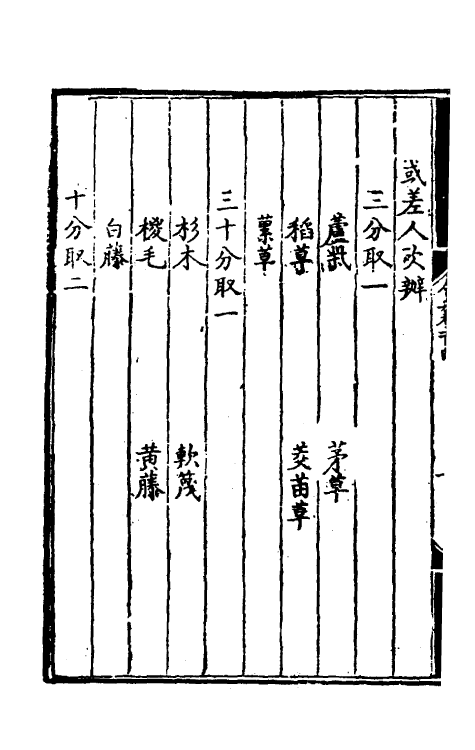 或差人砍辦
三分取一
蘆柴 茅草
稻草 茭苗草
藁草
三十分取一
杉木 軟篾
椶毛 黄藤
白藤
十分取二